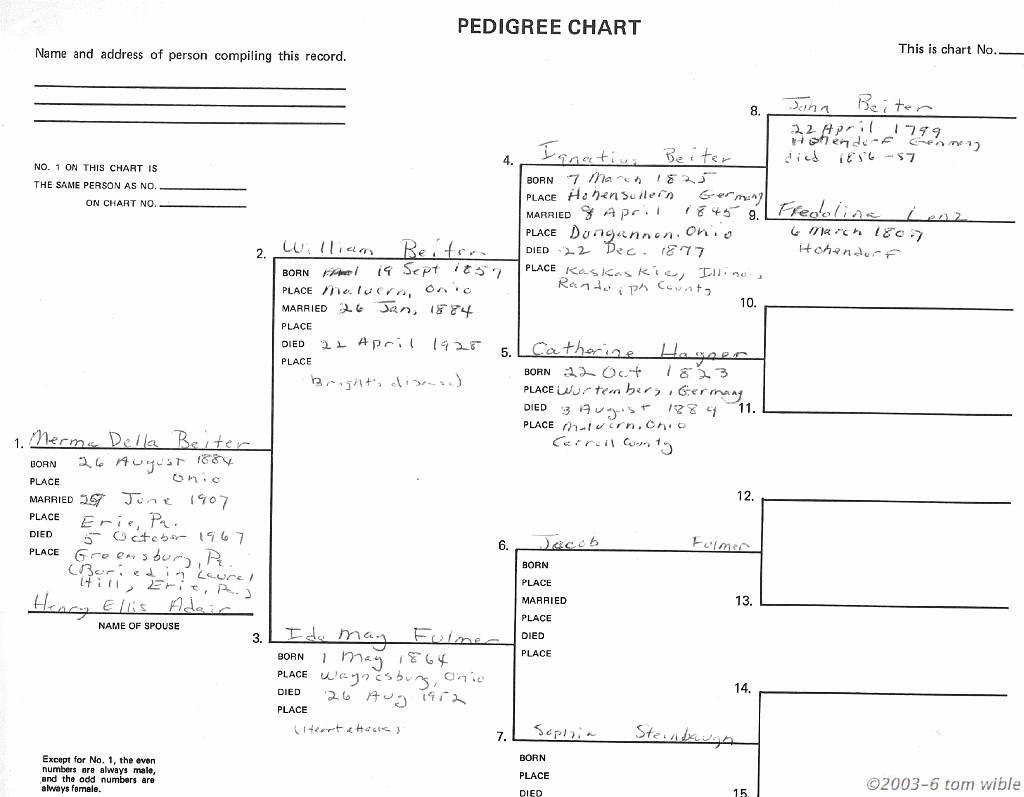 PEDIGREE CHART
Name and address of person compiling this record.
This is chart No.
NO. 1 ON THIS CHART IS
THE SAME PERSON AS NO.
ON CHART NO.
8. John Beiter
22 April 1799
Hohendorf Germany
died 1856-57
4. Ignatius Beiter
BORN 7 March 1825
PLACE Hohensollern Germany
MARRIED 8 April 1845
PLACE Dungannon, Ohio
DIED 22 Dec. 1877
PLACE Kaskaskie, Illinois
Randolph County
9. Fredolina Lenz
6 March 1807
Hohendorf
2. William Beiter
BORN 19 Sept 1857
PLACE Malvern, Ohio
MARRIED 26 Jan, 1884
PLACE
DIED 22 April 1928
PLACE
(Bright's disease)
10.
5. Catherine Hagner
BORN 22 Oct 1823
PLACE Wurtemberg, Germany
DIED 3 August 1889
PLACE Malvern, Ohio
Carroll County
11.
1. Merma Della Beiter
BORN 26 August 1884
PLACE Ohio
MARRIED June 1907
PLACE Erie, Pa.
DIED 5 October 1967
PLACE Greensburg, Pa.
(Buried in Laurel
Hill, Erie, Pa.)
Henry Ellis Adair
NAME OF SPOUSE
12.
6. Jacob Fulmer
BORN
PLACE
MARRIED
PLACE
DIED
PLACE
13.
3. Ida May Fulmer
BORN 1 May 1864
PLACE Waynesburg, Ohio
DIED 26 Aug 1952
PLACE
(Heart attack)
14.
7. Sophia Steinbaugh
BORN
PLACE
DIED
15.
Except for No. 1, the even
numbers are always male,
and the odd numbers are
always female.
©2003-6 tom wible